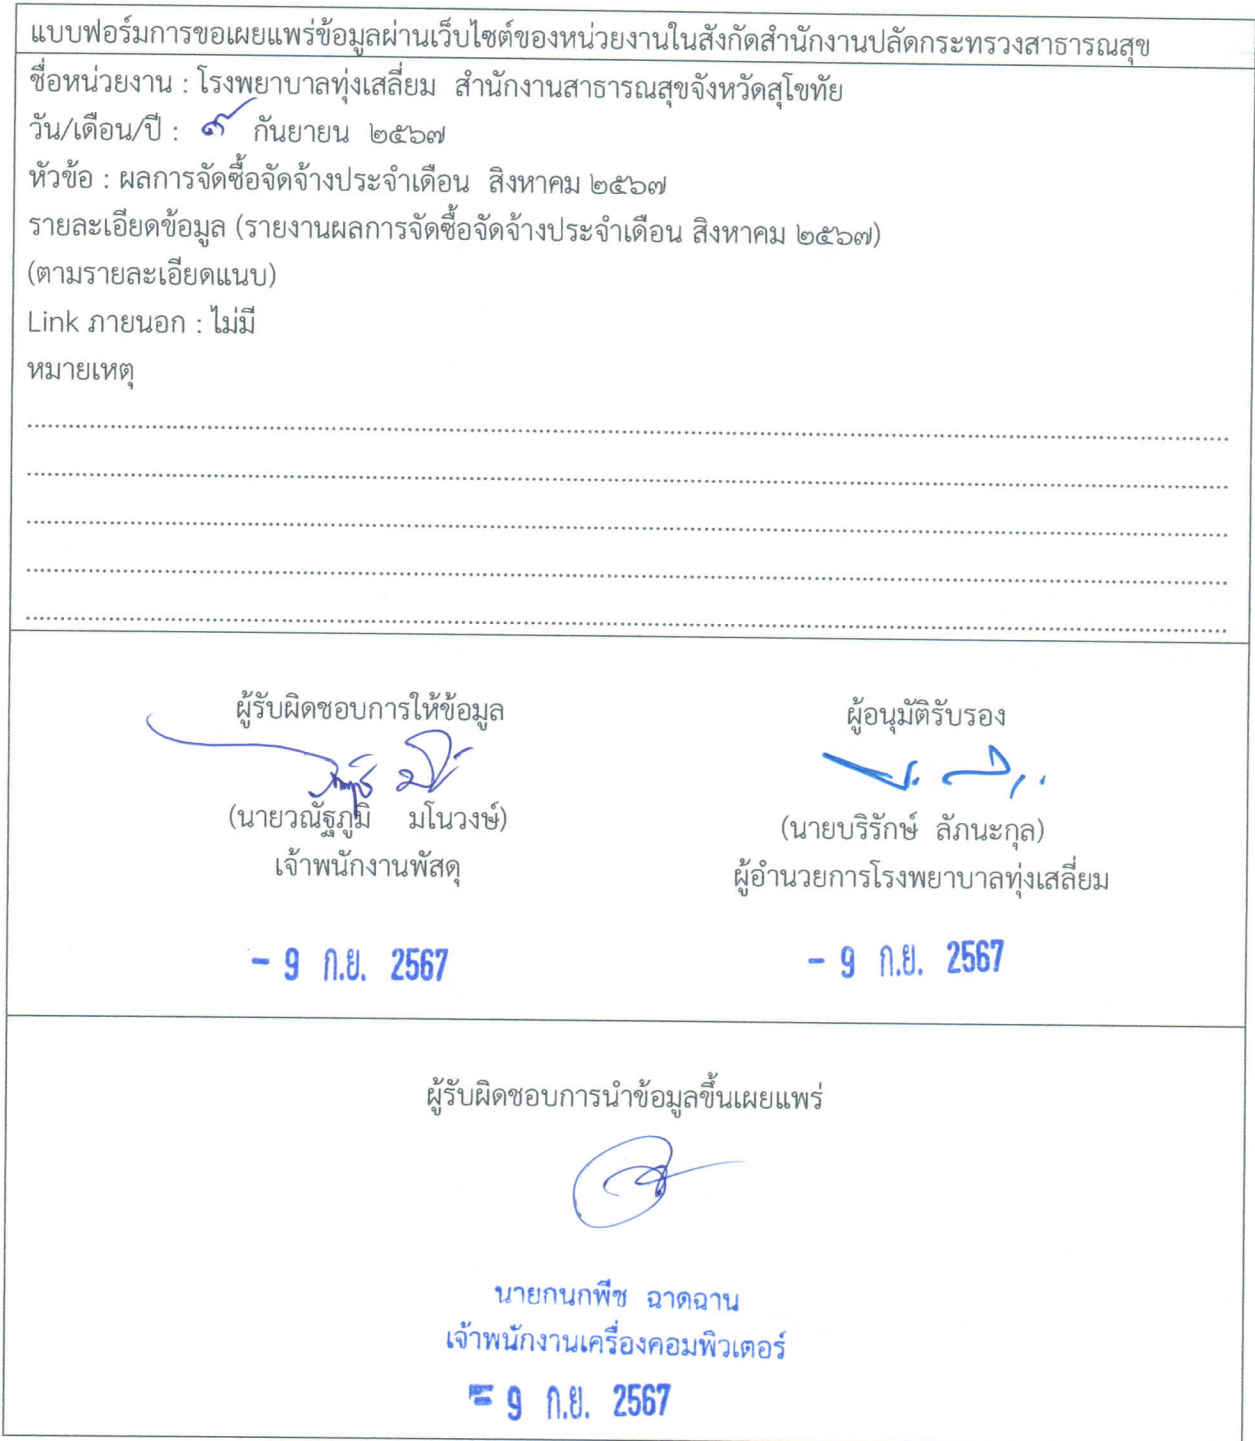 แบบฟอร์มการขอเผยแพร่ข้อมูลผ่านเว็บไซต์ของหน่วยงานในสังกัดสำนักงานปลัดกระทรวงสาธารณสุข
ชื่อหน่วยงาน : โรงพยาบาลทุ่งเสลี่ยม สำนักงานสาธารณสุขจังหวัดสุโขทัย
วัน/เดือน/ปี : ๙ กันยายน ๒๕๖๗
หัวข้อ : ผลการจัดซื้อจัดจ้างประจำเดือน สิงหาคม ๒๕๖๗
รายละเอียดข้อมูล (รายงานผลการจัดซื้อจัดจ้างประจำเดือน สิงหาคม ๒๕๖๗)
(ตามรายละเอียดแนบ)
Link ภายนอก : ไม่มี
หมายเหตุ
ผู้รับผิดชอบการให้ข้อมูล
(นายวณัฐภูมิ มโนวงษ์)
เจ้าพนักงานพัสดุ
- 9 ก.ย. 2567
ผู้อนุมัติรับรอง
(นายบริรักษ์ ลัภนะกุล)
ผู้อำนวยการโรงพยาบาลทุ่งเสลี่ยม
- 9 ก.ย. 2567
ผู้รับผิดชอบการนำข้อมูลขึ้นเผยแพร่
นายกนกพีช ฉาดฉาน
เจ้าพนักงานเครื่องคอมพิวเตอร์
- 9 ก.ย. 2567